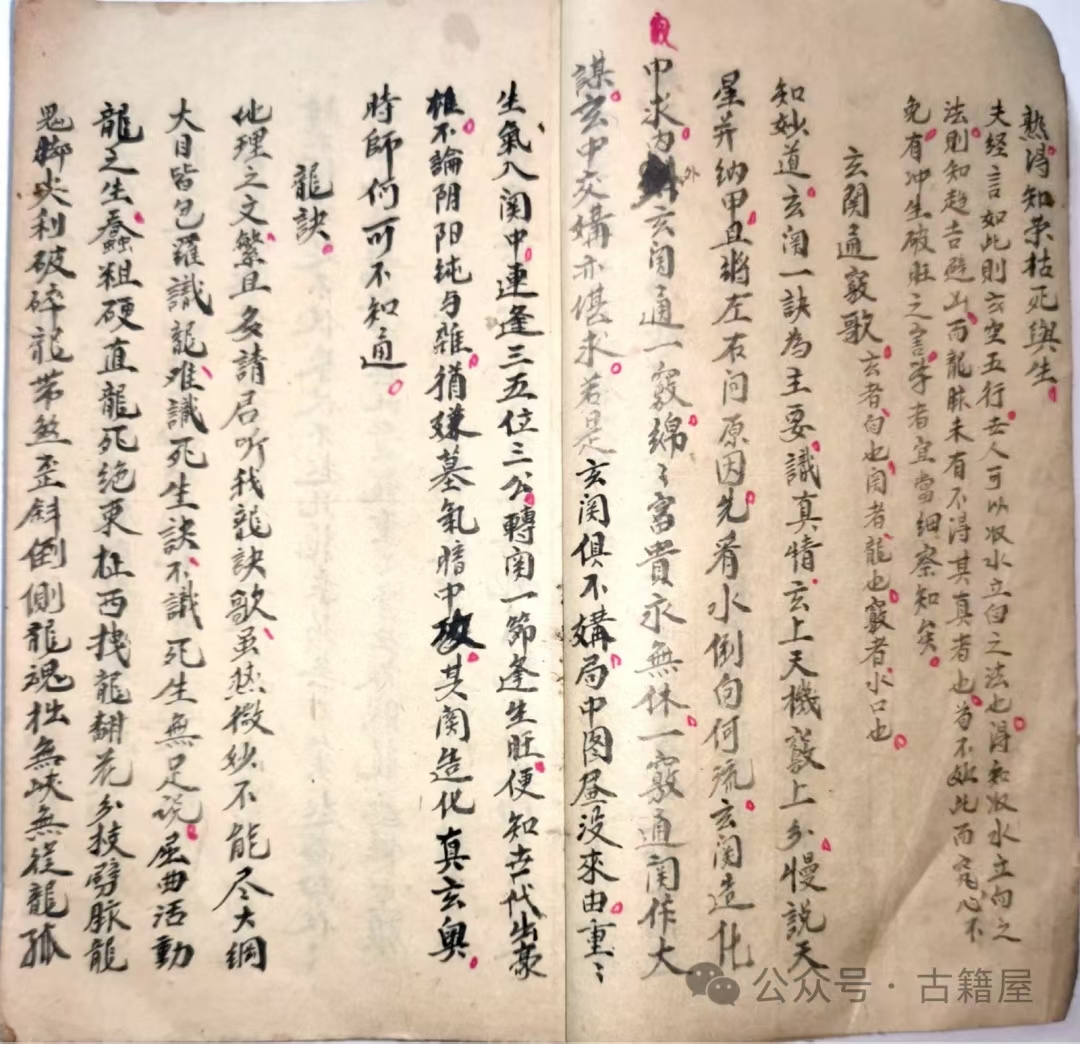 熟得知荣枯死與生
夫经言如此則玄空五行世人可以収水立向之法也得知収水立向之
法則知趋吉避凶而龍脉未有不得其真者也苟不如此而究心不
免有冲生破旺之害学者宜當细察知矣
玄関通竅歌 玄者向也関者龍也竅者水口也
知妙道玄関一訣為主要識真情玄上天機竅上分慢說天
星并纳甲且将左右问原因先看水倒向何流玄関造化
竅中求内外玄関通一竅綿〻富貴永無休一竅通関作大
謀玄中交媾亦堪求若是玄関俱不媾局中图昼没來由重〻
生氣入関中連逢三五位三公轉関一節逢生旺便知世代出豪
雄不論阴阳纯与雜犹嫌墓氣暗中攻其関造化真玄奥
時師何可不知通
龍訣
地理之文繁且多請君听我龍訣歌虽然微妙不能尽大綱
大目皆包羅識龍难識死生訣不識死生無足说屈曲活動
龍之生蠢粗硬直龍死绝東扯西拽龍翻花分枝劈脉龍
鬼脚尖利破碎龍带煞歪斜倒側龍魂拙無峡無從龍孤
公众号·古籍屋